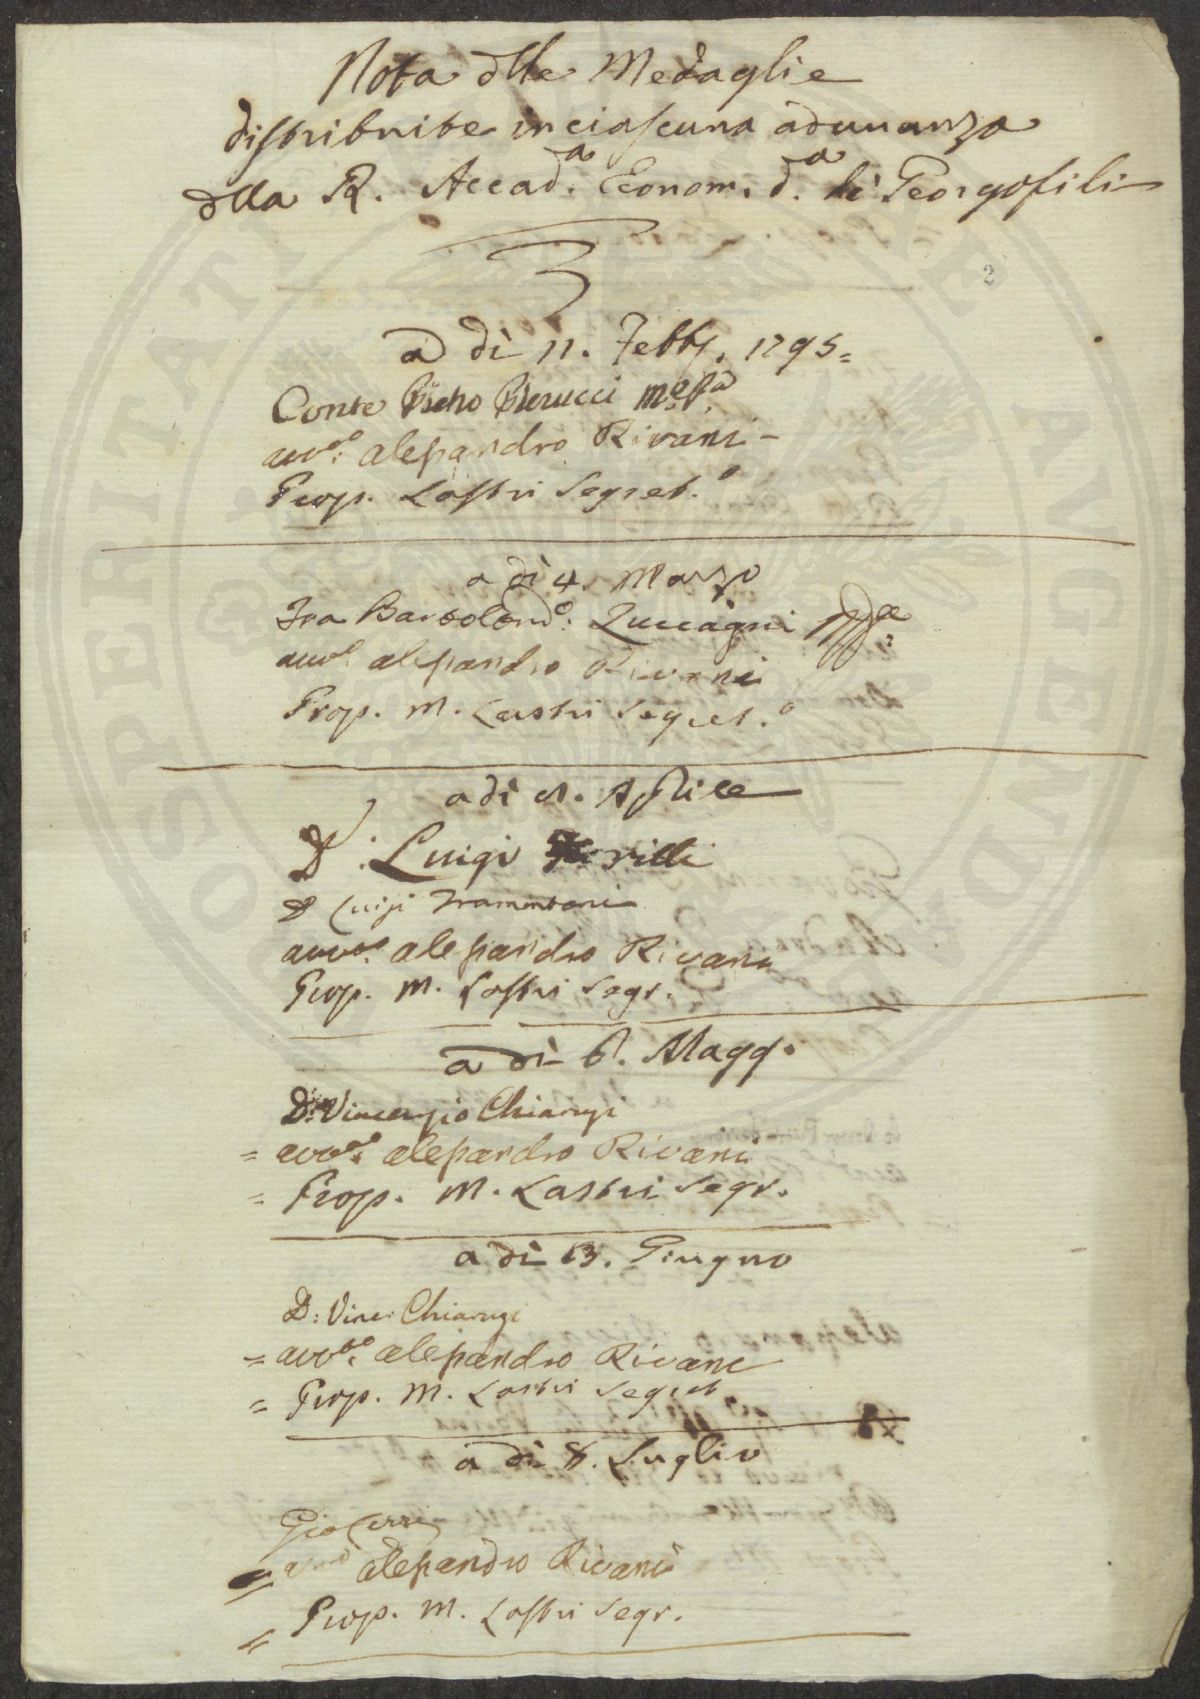 Nota dlle Medaglie
distribuite in ciascuna adunanza
dlla R. Accad.a Econom. d.a di Georgofili
2
a dì 11. Febb. 1795=
Conte Pietro Pierucci
avv.o Alessandro Rivani -
Prop. Lastri Segret.o
a dì 4. Marzo
Fra Bartolom.o: Zuccagni
avv.o Alessandro Rivani
Prop. M. Lastri Segret.o
a dì Aprile
D: Luigi
D Luigi Tramontani
avv.o Alessandro Rivani
Prop. M. Lastri Segr.
a dì 6. Magg.o
D: Vincenzio Chiarugi
= avv.o Alessandro Rivani
= Prop. M. Lastri Segr.
a dì 13. Giugno
D: Vinc: Chiarugi
= avv.o Alessandro Rivani
= Prop. M. Lastri Segret
a dì 8. Luglio
Gio
= Alessandro Rivani
= Prop. M. Lastri Segr.
PROSPERITATI PUBLICAE AUGENDAE